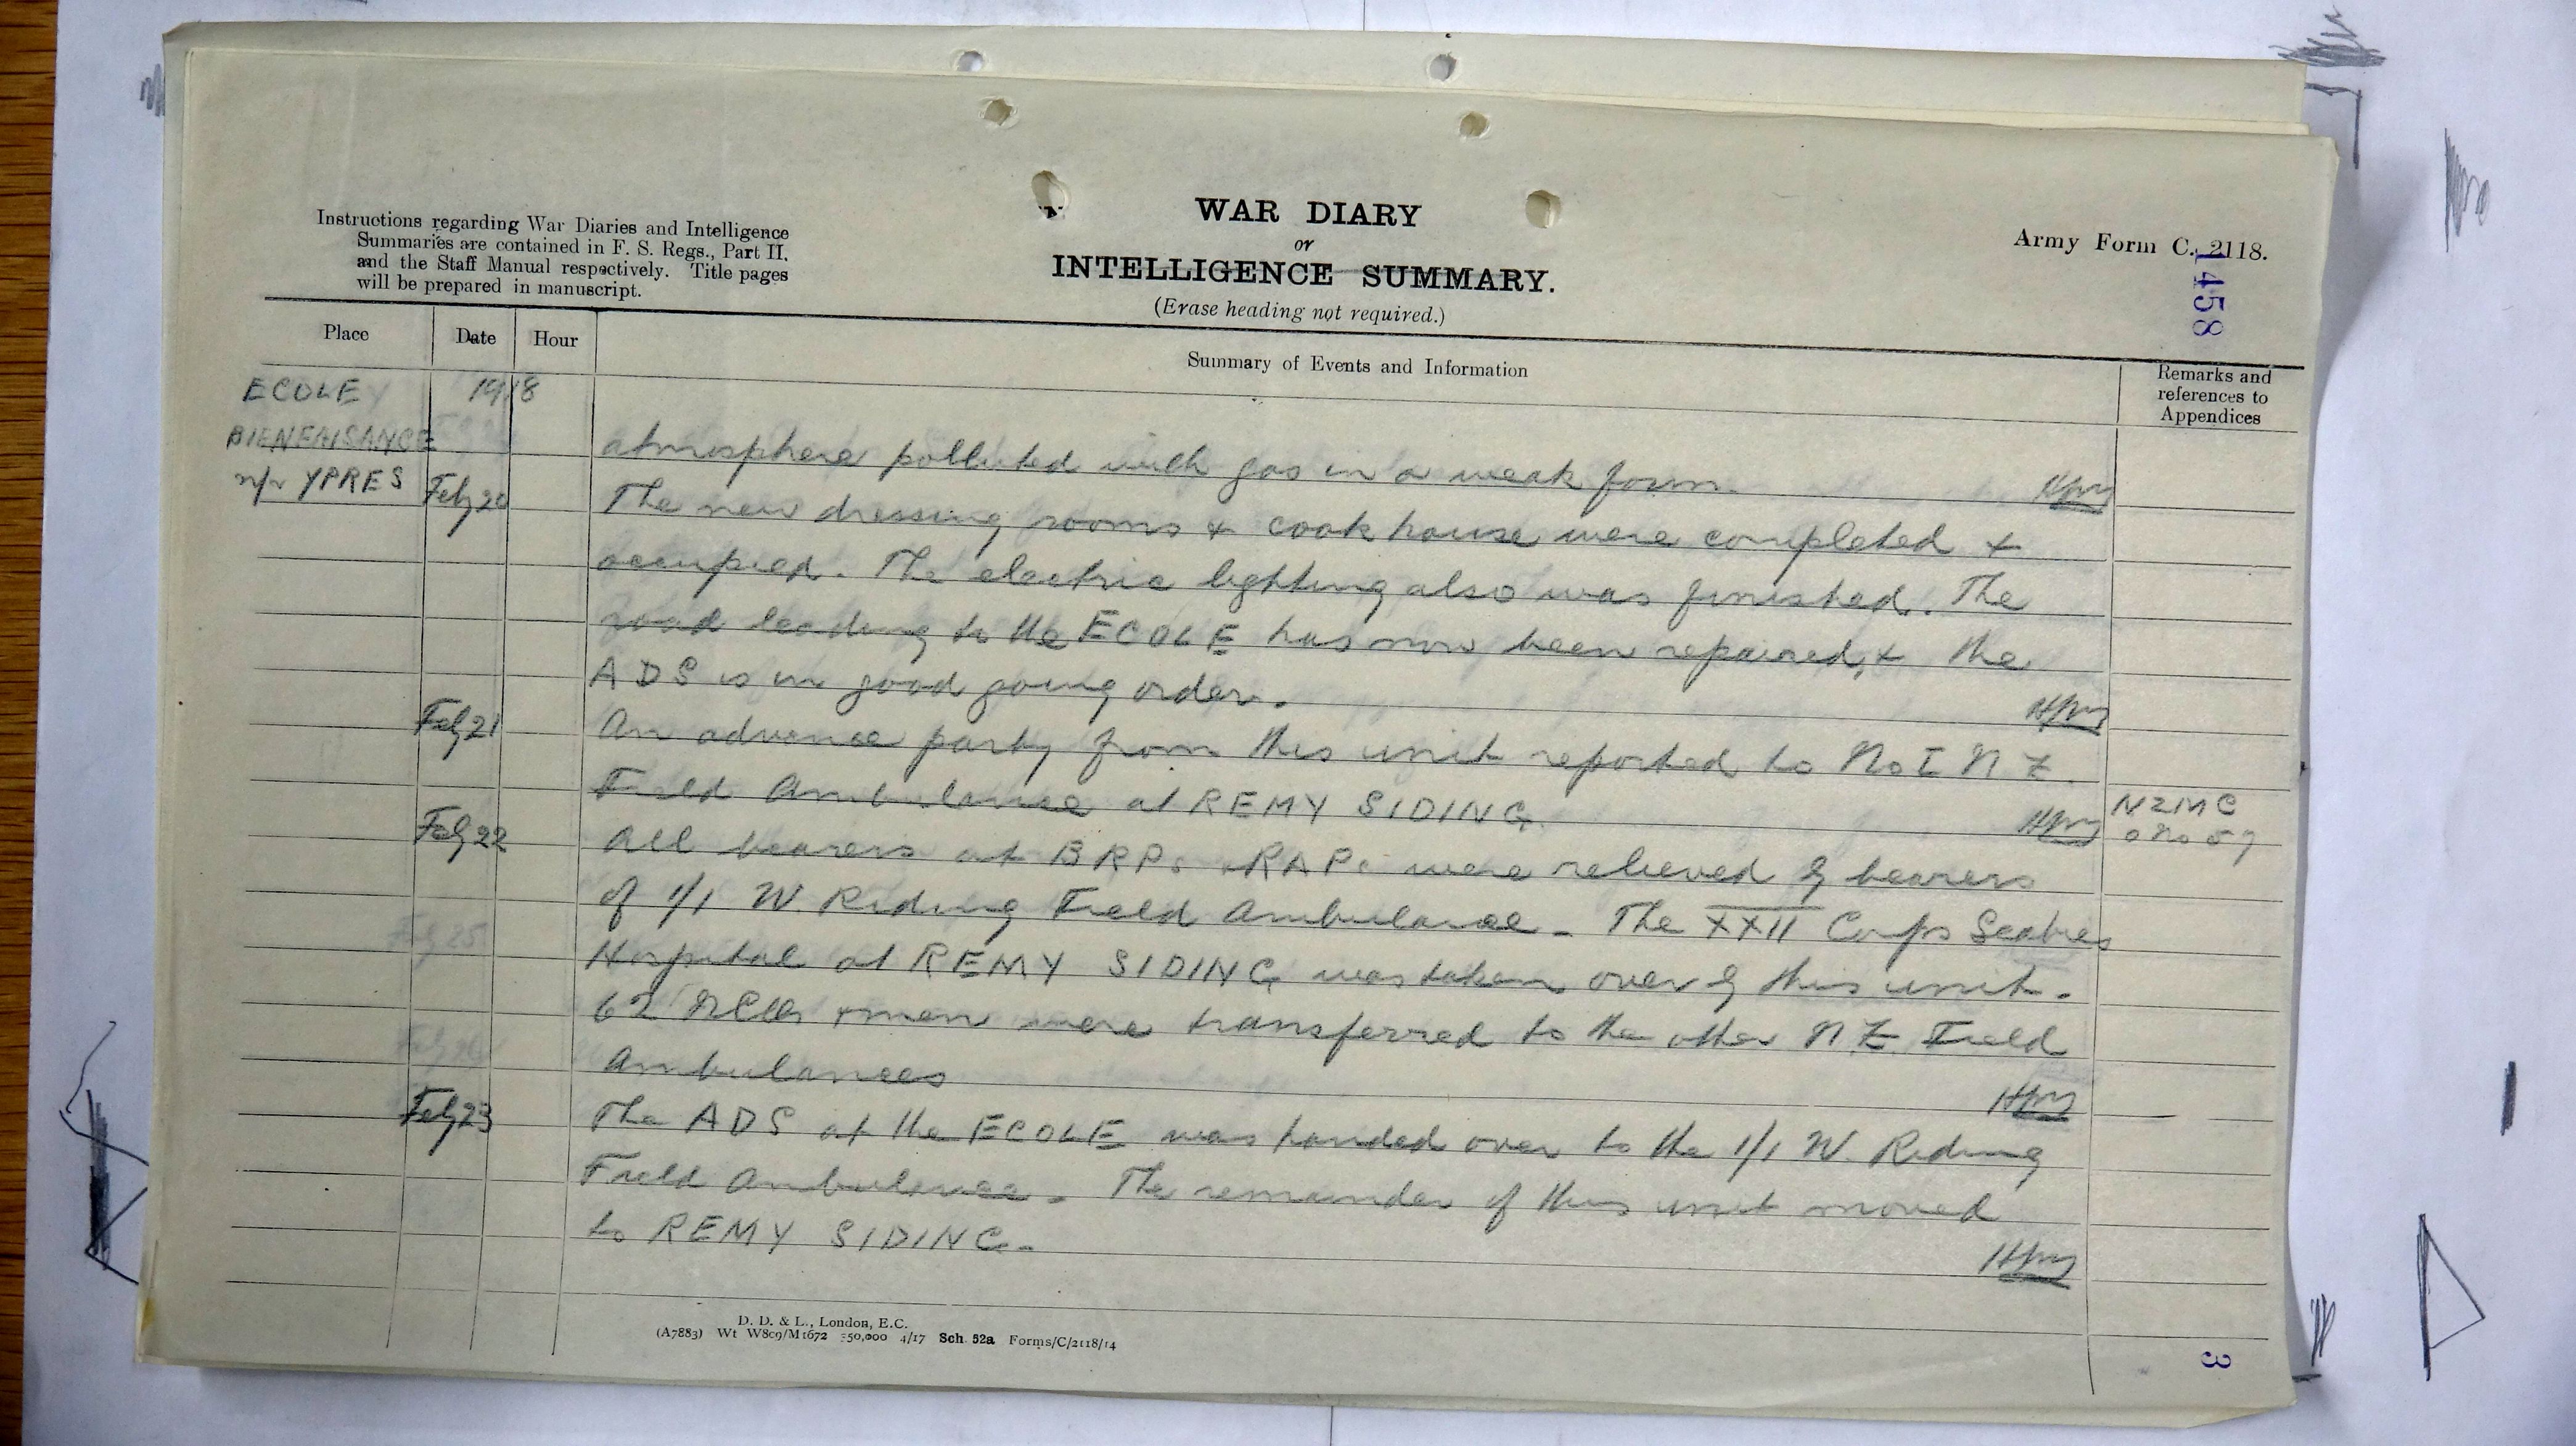 Instructions regarding War Diaries and Intelligence
Summaries are contained in F. S. Regs., Part II.
and the Staff Manual respectively. Title pages
will be prepared in manuscript.
WAR DIARY
or
INTELLIGENCE SUMMARY.
(Erase heading not required.)
Army Form C. 2118.
1458
Place Date Hour Summary of Events and Information Remarks and references to Appendices
ECOLE 1918
BIENFAISANCE atmosphere polluted with gas in a weak form.
n/r YPRES Feby 20 The new dressing rooms & cook house were completed &
occupied. The electric lighting also was finished. The
road leading to the ECOLE has now been repaired, & the
ADS is in good going order.
Feby 21 An advance party from this unit reported to No I NZ.
Field Ambulance at REMY SIDING NZMC
Feby 22 All bearers at BRPs RAPs were relieved by bearers
of 1/1 W. Riding Field Ambulance. The XXII Corps Scabies
Hospital at REMY SIDING was taken over by this unit.
62 NCOs & men were transferred to the other NZ Field
Ambulances
Feby 23 The ADS at the ECOLE was handed over to the 1/1 W. Riding
Field Ambulance. The remainder of this unit moved
to REMY SIDING.
D. D. & L., London, E.C.
(A7883) Wt W809/M1672 350,000 4/17 Sch. 52a Forms/C/2118/14
3